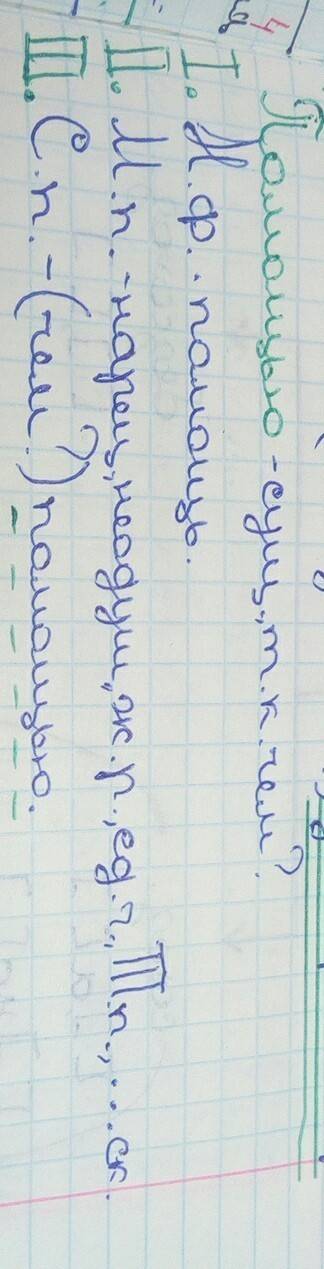 Помощью - сущ., т.к. чем?
I. Н.ф. - помощь.
II. М.п. - нариц., неодуш., ж.р., ед.ч., Т.п., ... ск.
III. С.п. - (чем?) помощью.